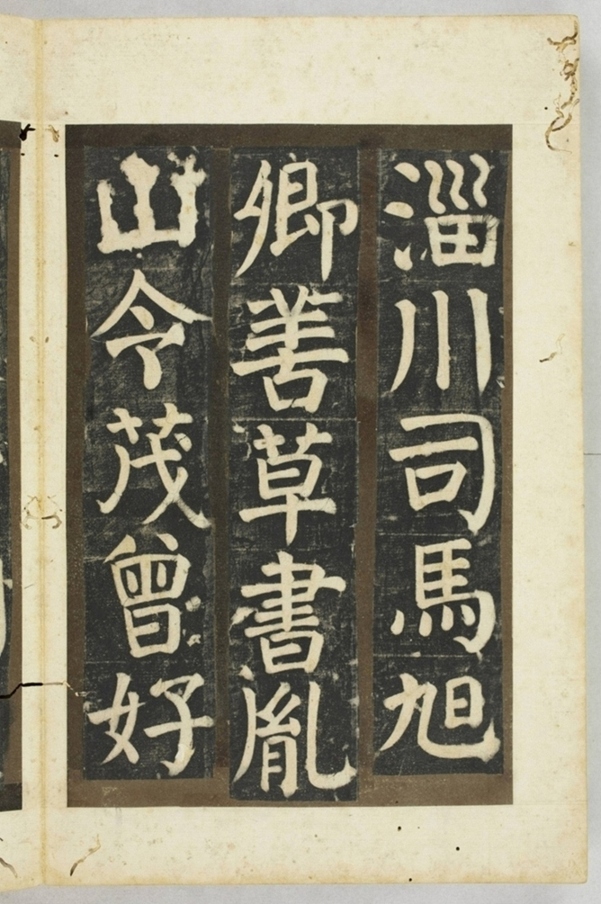 淄川司馬旭
卿善草書胤
山令茂曾好